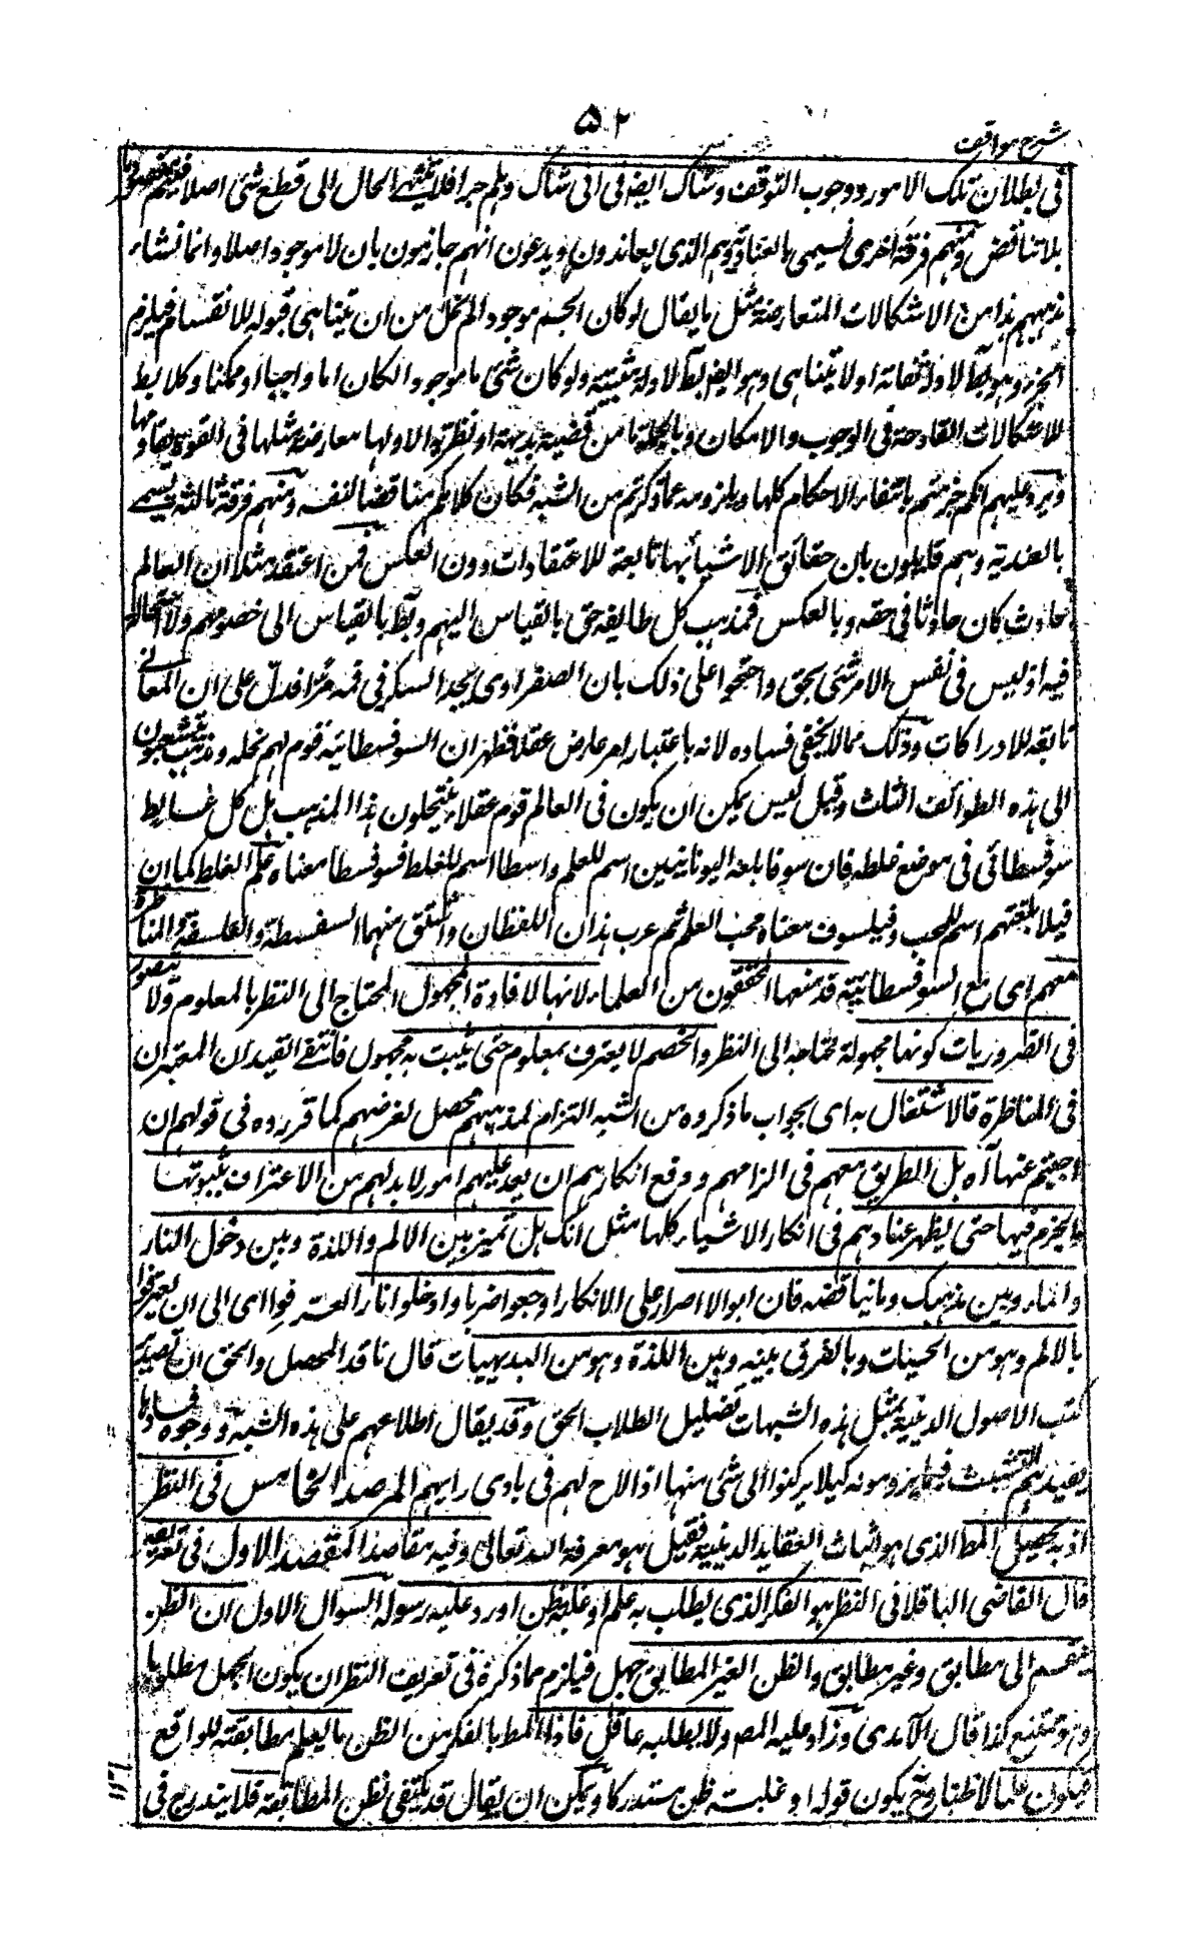 ۵۲
شرح مواقف
فی بطلان تلک الامور ووجوب التوقف وشاک ایضا فی انی شاک وهلم جرا فلا ینتهی الحال الی قطع شئ اصلا فیتم مقصودنا
بلا تناقض ومنهم فرقة اخری تسمی بالعنادیة وهم الذی یعاندون ویدعون انهم جازمون بان لا موجود اصلا وانما نشاء
مذهبهم هذا من الاشکالات المتعارضة مثل ما یقال لو کان الجسم موجودا لم یخل من ان یتناهی قبوله للانقسام فیلزم
الجزء وهو بط لا ولا یتناهی وهو ایضا بط لا ولو کان شئ ما موجودا لکان اما واجبا او ممکنا وکلا بط
للاشکالات القادحة فی الوجوب والامکان وبالجملة ما من قضیة بدیهیة او نظریة الا ولها معارضة مثلها فی القوة یقاومها
ویرد علیهم انکم جزمتم بانتفاء الاحکام کلها وبلزومه مما ذکرتم من الشبه فکان کلامکم مناقضا لنفسه ومنهم فرقة ثالثة یسمے
بالعندیة وهم قایلون بان حقائق الاشیاء تابعة للاعتقادات دون العکس فمن اعتقد مثلا ان العالم
حادث کان حادثا فی حقه وبالعکس فمذهب کل طایفة حق بالقیاس الیهم وبط بالقیاس الی خصومهم ولا استحالة
فیه اذ لیس فی نفس الامر شئ بحق واحتجوا علی ذلک بان الصفراوی یجد السکر فی فمه مرا فدل علی ان المعانی
تابعة للادراکات وذلک مما لا یخفی فساده لانه باعتبار امر عارض عقلا فظهر ان السوفسطائیة قوم لهم نحلة ومذهب یتشعبون
الی هذه الطوائف الثلث وقیل لیس یمکن ان یکون فی العالم قوم عقلاء ینتحلون هذا المذهب بل کل غالط
سوفسطائی فی موضع غلطه فان سوفا بلغة الیونانیین اسم للعلم واسطا اسم للغلط فسوفسطا معناه علم الغلط کما ان
فیلا بلغتهم اسم للمحب وفیلسوف معناه محب العلم ثم عرب هذان اللفظان واشتق منهما السفسطة والفلسفة والمناظرة
معهم ای مع السوفسطائیة قد منعها المحققون من العلماء لانها لافادة المجهول المحتاج الی النظر بالمعلوم ولا یتصور
فی الضروریات کونها مجهولة محتاجة الی النظر والخصم لا یعترف بمعلوم حتی یثبت به مجهول فانتفے القیدان المعتبران
فی المناظرة فالاشتغال به ای بجواب ما ذکروه من الشبه التزام لمذهبهم محصل لغرضهم کما قرروه فی قولهم ان
اجبتم عنها آه بل الطریق معهم فی الزامهم ودفع انکارهم ان یعد علیهم امور لا بد لهم من الاعتراف بثبوتها
والجزم فیها حتی یظهر عنادهم فی انکار الاشیاء کلها مثل انک هل تمیز بین الالم واللذة وبین دخول النار
والماء وبین مذهبک وما یناقضه فان ابوا الا اصرارا علی الانکار اوجعوا ضربا وادخلوا نارا لیعترفوا ای الی ان یعترفوا
بالالم وهو من الحسیات وبالفرق بینه وبین اللذة وهو من البدیهیات قال ناقد المحصل والحق ان تصدیر
کتب الاصول الدینیة بمثل هذه الشبهات تضلیل لطلاب الحق وقد یقال اطلاعهم علی هذه الشبه ووجوه فسادها
یفیدهم التثبت فیما یرومونه کیلا یرکنوا الی شئ منها اذا لاح لهم فی بادی رایهم المرصد الخامس فی النظر
اذ به تحصیل المط الذی هو اثبات العقاید الدینیة فقیل هو معرفة الله تعالی وفیه مقاصد المقصد الاول فی تعریفه
قال القاضی الباقلانی النظر هو الفکر الذی یطلب به علم او غلبة ظن اورد علیه سوال السوال الاول ان الظن
ینقسم الی مطابق وغیر مطابق والظن الغیر المطابق جهل فیلزم مما ذکره فی تعریف النظر ان یکون الجهل مطلوبا
وهو ممتنع کذا قال الآمدی وزاد علیه المص ولا یطلبه عاقل فاذا المط بالفکر من الظن ما یعلم مطابقته للواقع
فیکون علما لا ظنا وح یکون قوله او غلبة ظن مستدرکا ویمکن ان یقال قد یکتفی بظن المطابقة فلا یندرج فی